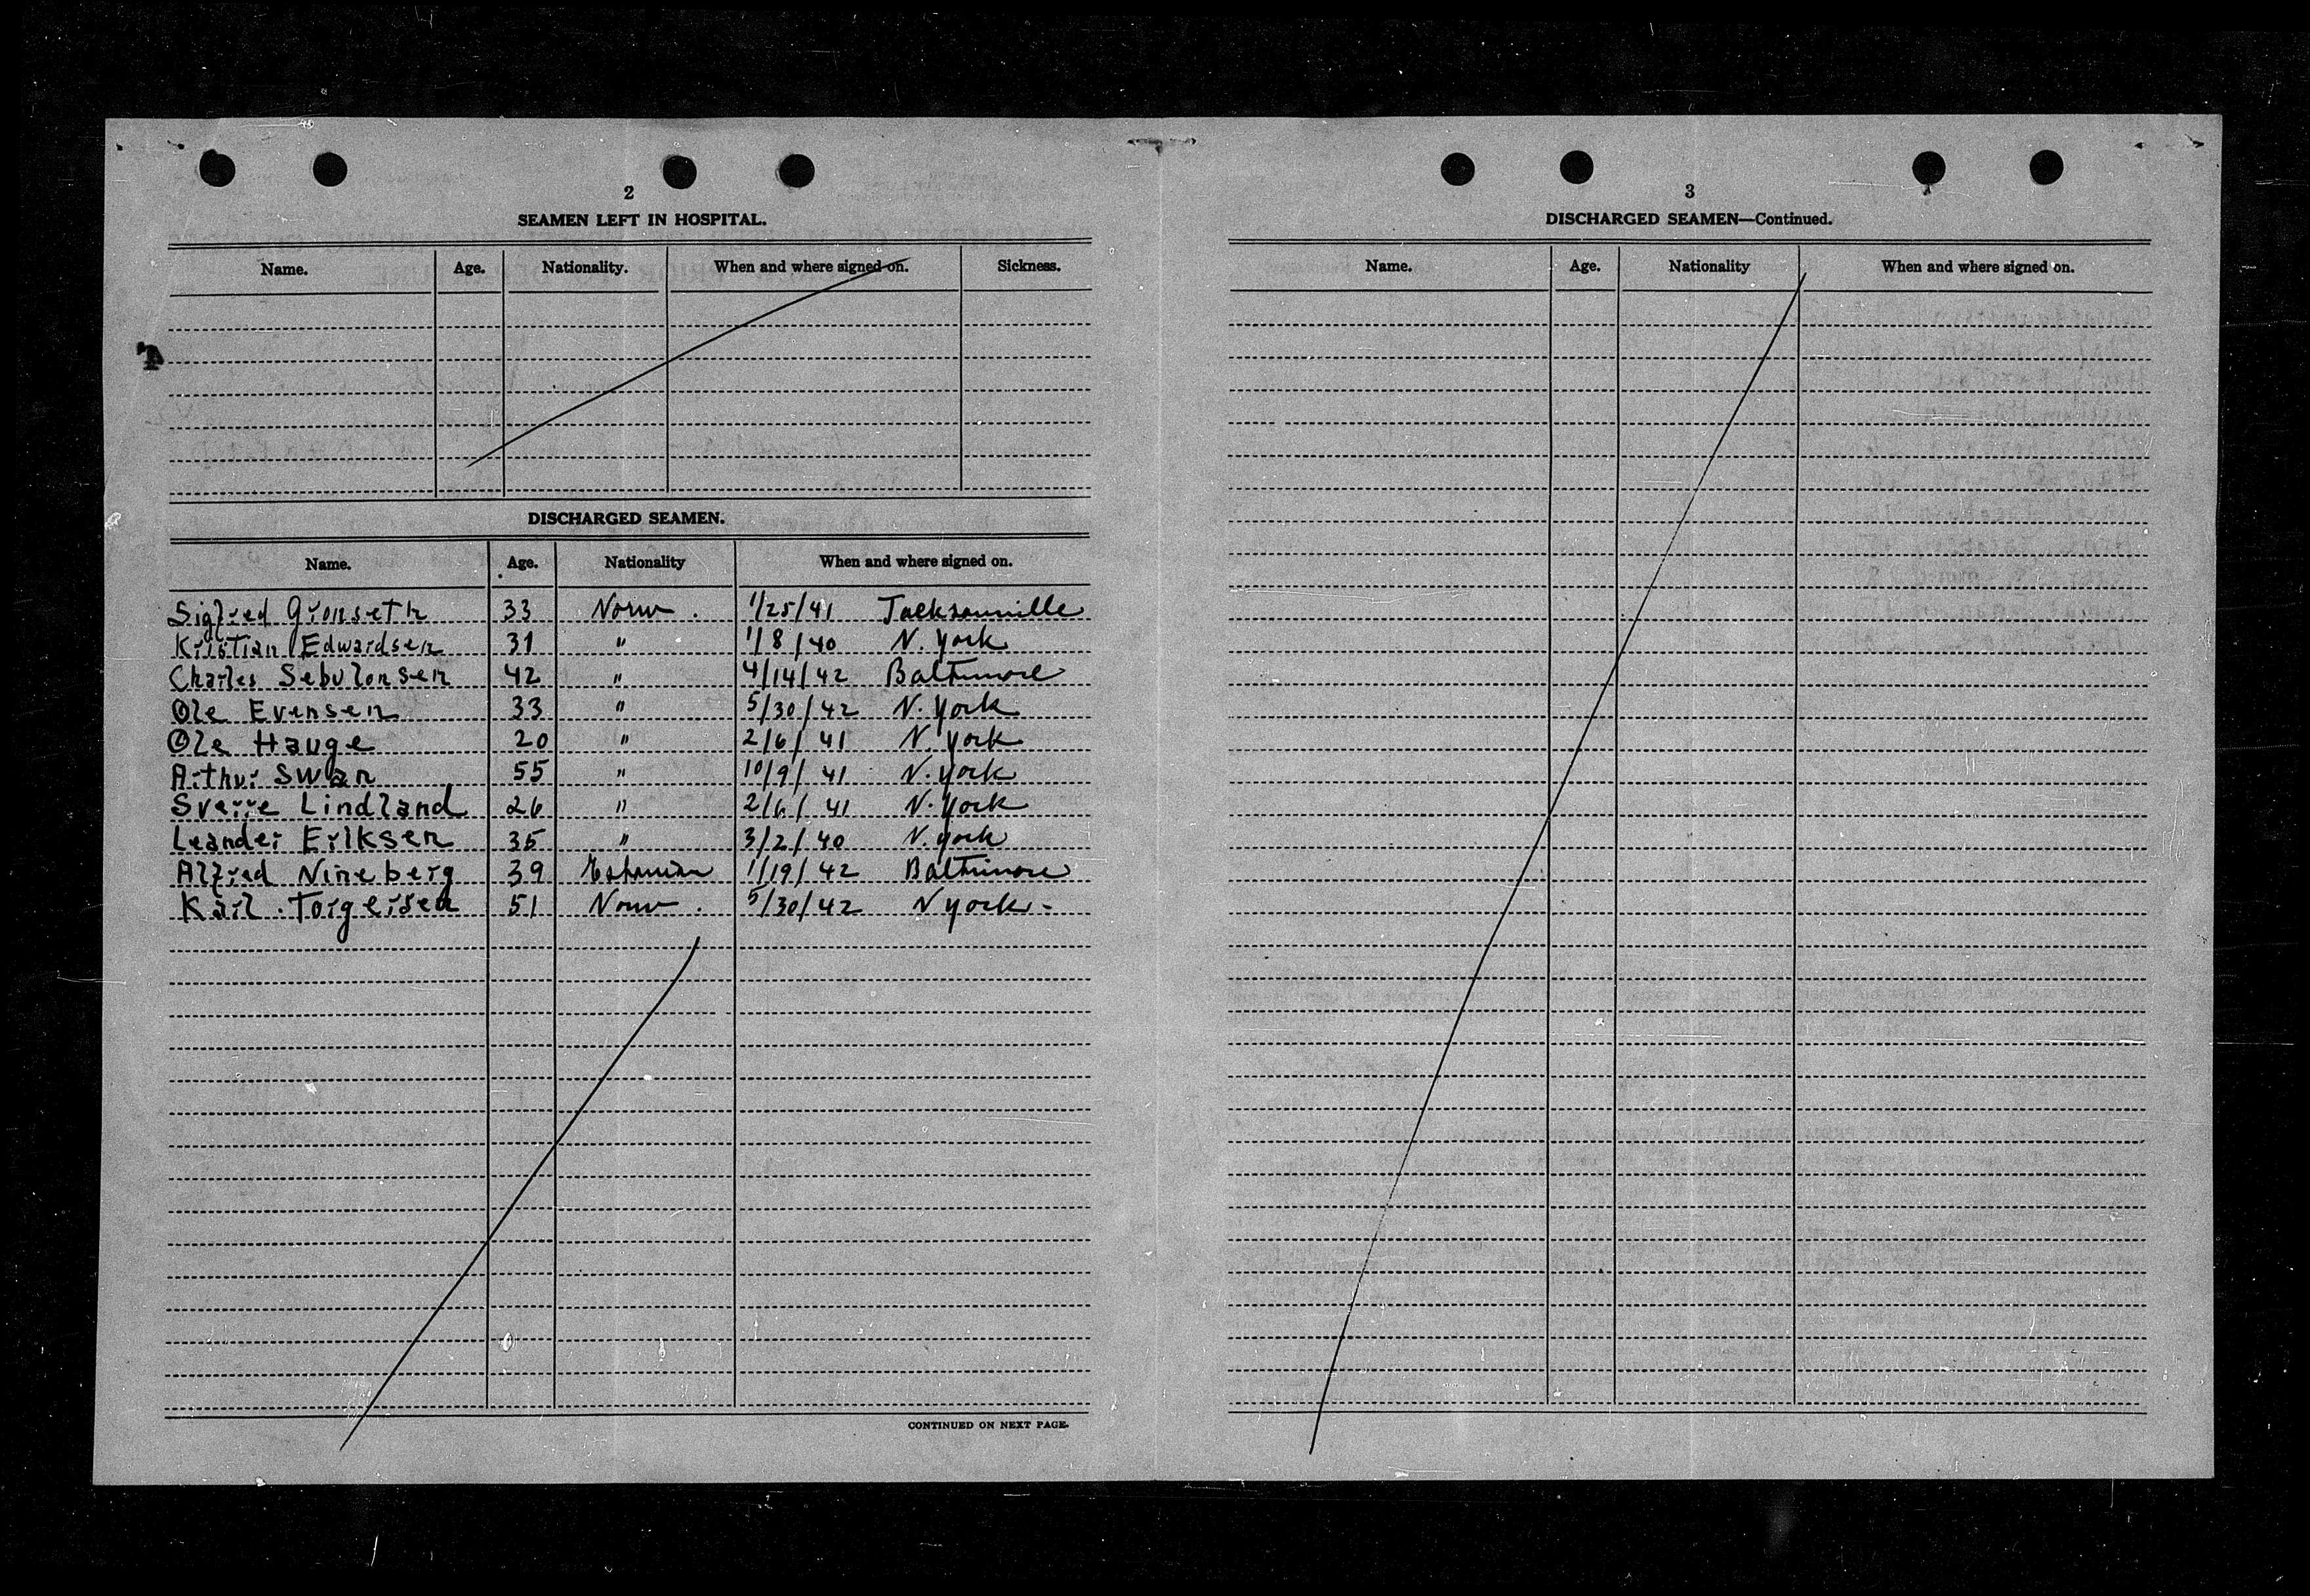 2
SEAMEN LEFT IN HOSPITAL.
Name. Age. Nationality. When and where signed on. Sickness.
DISCHARGED SEAMEN.
Name. Age. Nationality When and where signed on.
Sigfred Gronseth 33 Norw. 1/25/41 Jacksonville
Kristian Edwardsen 31 " 1/8/40 N. York
Charles Sebulonsen 42 " 4/14/42 Baltimore
Ole Evensen 33 " 5/30/42 N. York
Ole Hauge 20 " 2/6/41 N. York
Arthur Swan 55 " 10/9/41 N. York
Sverre Lindland 26 " 2/6/41 N. York
Leander Eriksen 35 " 3/2/40 N. York
Alfred Nineberg 39 Estonian 1/19/42 Baltimore
Karl Torgersen 51 Norw. 5/30/42 N York-
CONTINUED ON NEXT PAGE.
3
DISCHARGED SEAMEN—Continued.
Name. Age. Nationality When and where signed on.